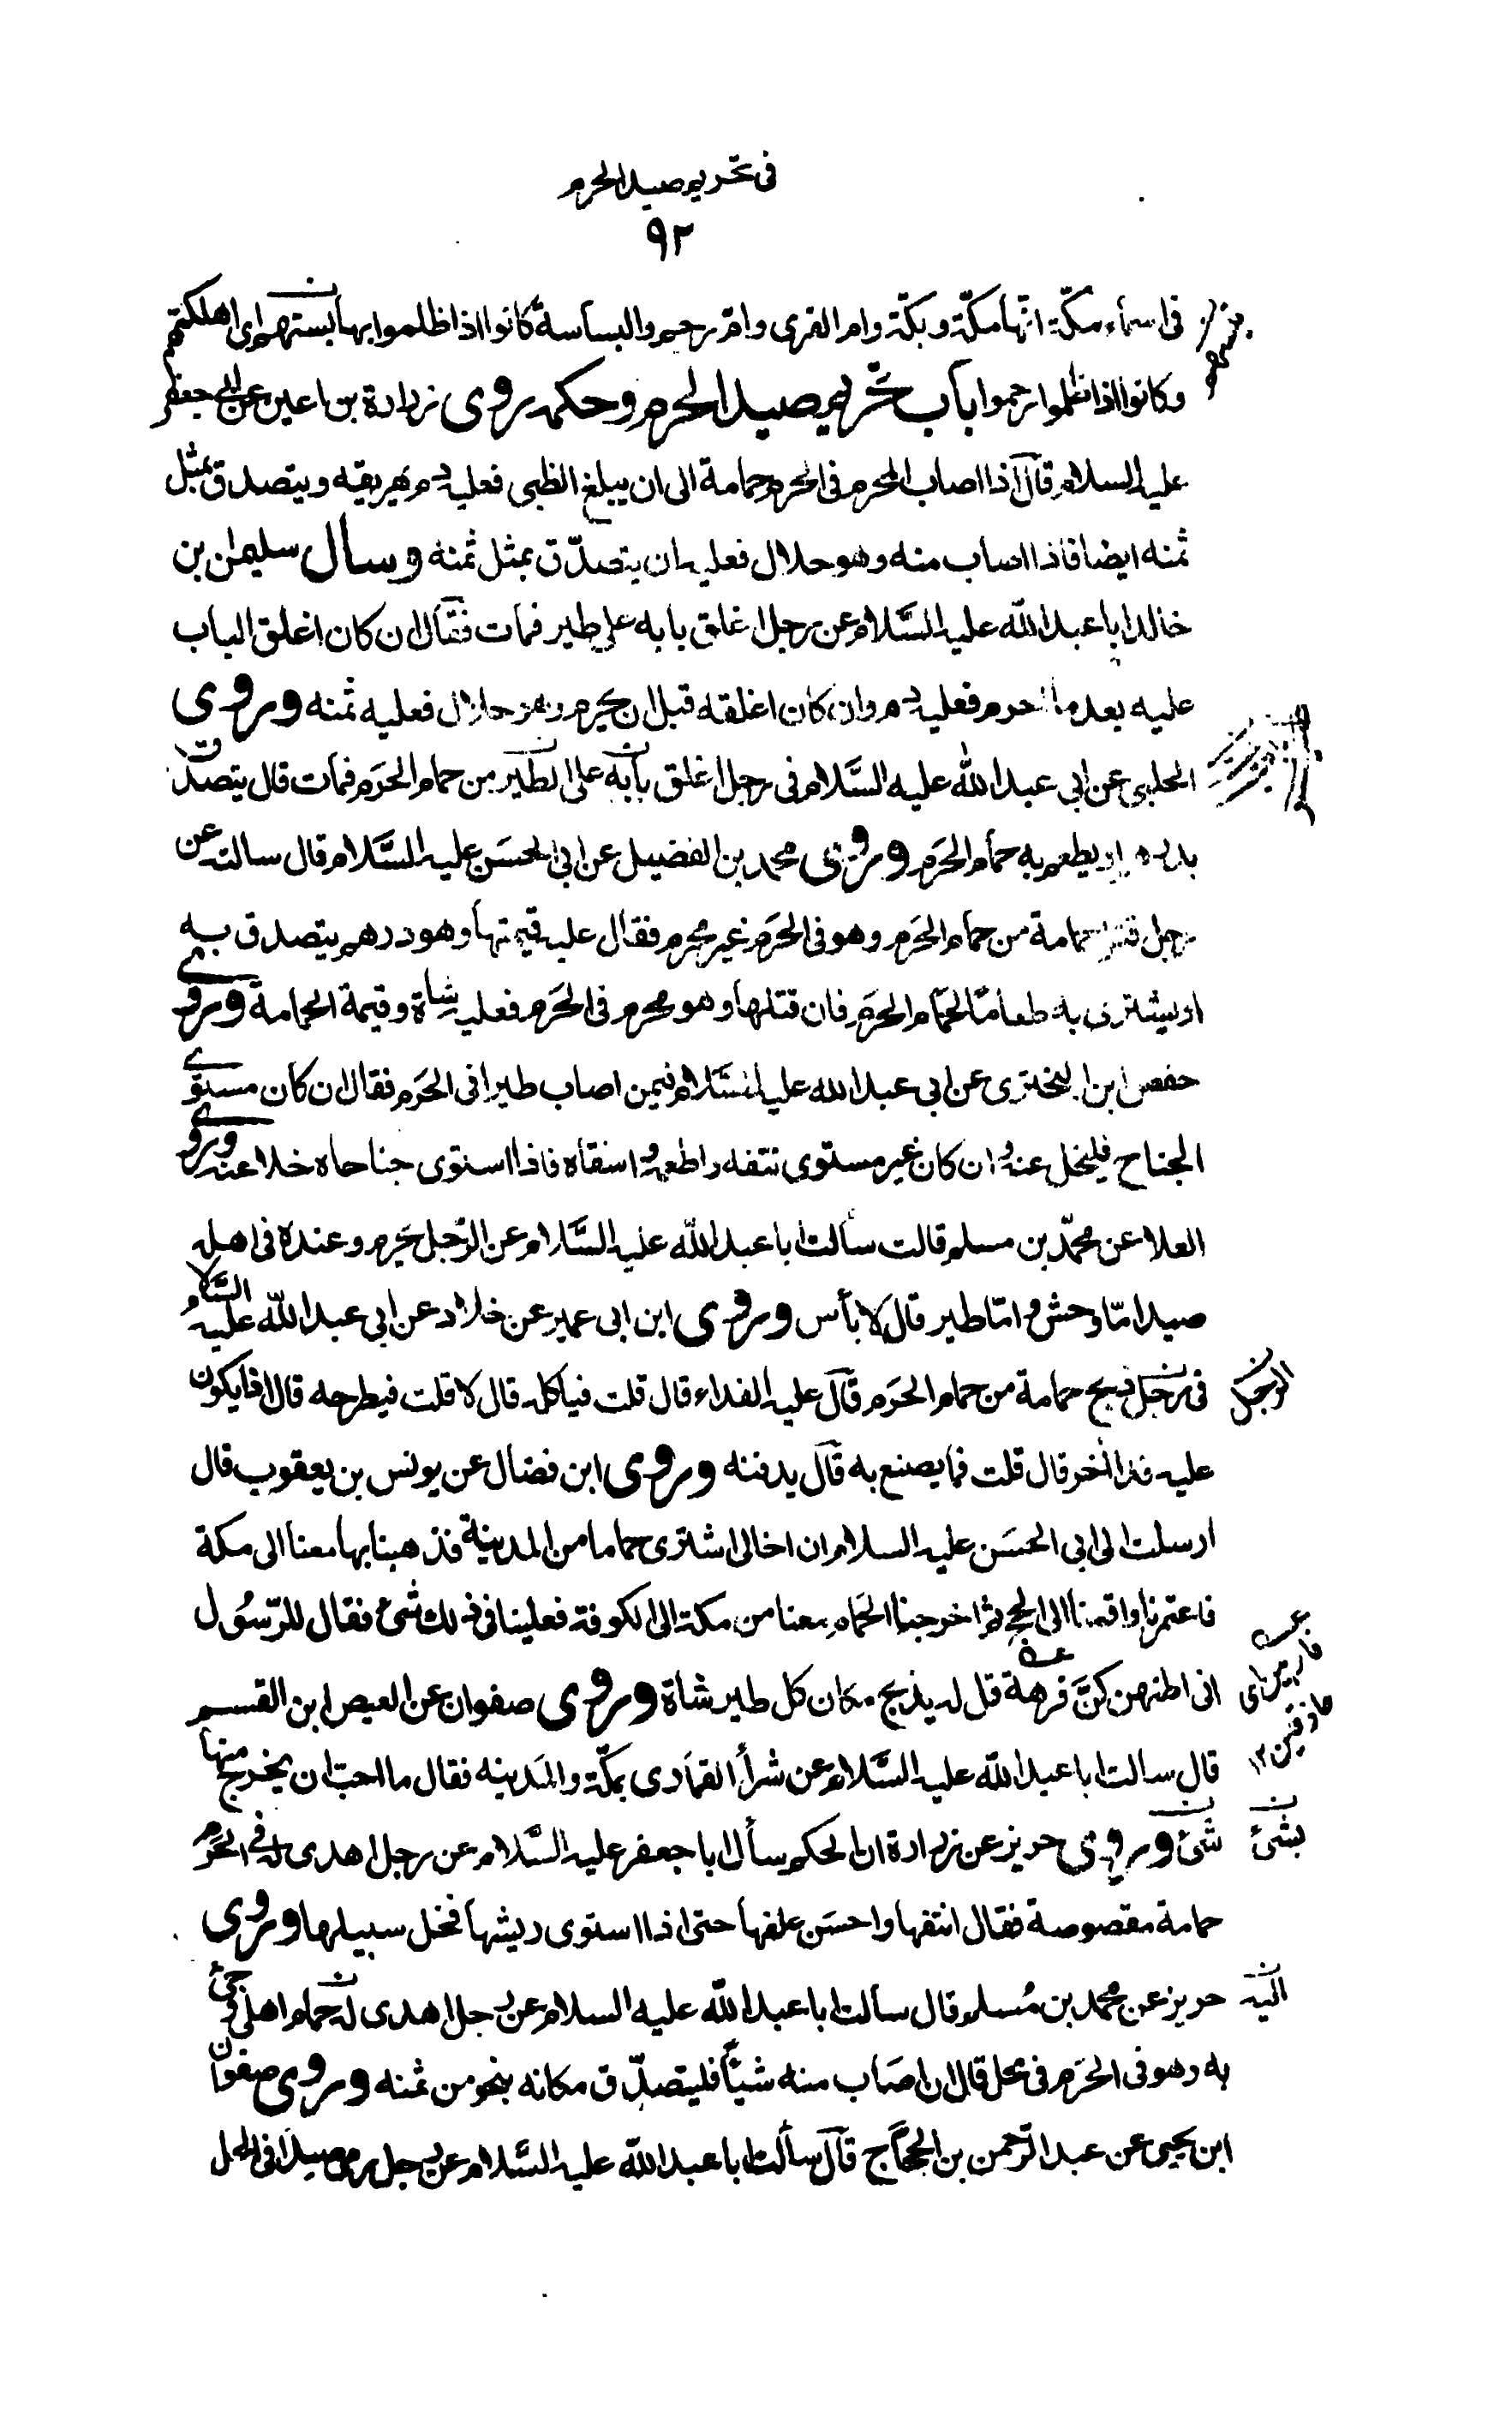 فى تحريم صيد الحرم
٩٢
فى اسماء مكّة انّها مكّة و بكّة وام القرى وامّ رحم والبساسة كانوا اذا ظلموا بها بستهم اى اهلكتهم
وكانوا اذا ظلموا رحموا باب تحريم صيد الحرم وحكمه روى زرارة بن اعين عن ابى جعفر
عليه السلام قال اذا اصاب المحرم فى الحرم حمامة الى ان يبلغ الظبى فعليه دم يهريقه ويتصدق بمثل
ثمنه ايضا فاذا اصاب منه وهو حلال فعليه ان يتصدّق بمثل ثمنه وسأل سليمان بن
خالد ابا عبد اللّه عليه السَّلام عن رجل اغلق بابه على طير فمات فقال ان كان اغلق الباب
عليه بعد ما احرم فعليه دم وان كان اغلقه قبل ان يحرم وهو حلال فعليه ثمنه وروى
الحلبى عن ابى عبد اللّه عليه السَّلام فى رجل اغلق بابه على الطير من حمام الحَرَم فمات قال يتصدّق
بدرهم او يطعم به حمام الحَرَم وروى محمد بن الفضيل عن ابى الحسَن عليه السَّلام قال سالته عن
رجل قتل حمامة من حمام الحَرَم وهو فى الحَرَم غير محرم فقال عليه قيمتها وهو درهم يتصدق به
او يشترى به طعامًا لحمَام الحَرَم فان قتلها وهو محرم فى الحَرَم فعليه شاة وقيمة الحمامة وروى
حفص ابن البخترى عن ابى عبد الله عليه السَّلام فيمن اصاب طيرا فى الحَرَم فقال ان كان مستوى
الجناح فليخل عنه وان كان غير مستوى نتفه واطعمه واسقاه فاذا استوى جناحاه خلا عنه وروى
العلا عن محمّد بن مسلم قالت سألت ابا عبد اللّه عليه السَّلام عن الرّجل يَحرم وعنده فى اهله
صيد امّا وحش وامّا طير قال لا بأس وروى ابن ابى عمير عن خلاد عن ابى عبد اللّه عليه السَّلام
فى رجل ذبح حمامة من حمام الحَرَم قال عليه الفداء قال قلت فياكله قال لا قلت فيطرحه قال اذا يكون
الرجل
عليه فداء اخر قال قلت فما يصنع به قال يدفنه وروى ابن فضال عن يونس بن يعقوب قال
ارسلت الى ابى الحسَن عليه السلام ان اخا لى اشترى حماما من المدينة فذهبنا بها معنا الى مكة
فاعتمرنا واقمنا الى الحج ثم اخرجنا الحمَام معنا من مكة الى الكوفة فعلينا فى ذلك شئ فقال للرّسُول
انى اظنهن كنَّ فرهة قل له يذبح مكان كل طير شاة وروى صفوان عن العيص ابن القسم
قال سالت ابا عبد اللّه عليه السَّلام عن شرأ القمَارى بمكّة والمَدينه فقال ما احبّ ان يخرج منها
شئ وروى حريز عن زرارة ان الحكم سأل ابا جعفر عليه السَّلام عن رجل اهدى له فى الحَرَم
بشئ
حمامة مقصوصة فقال انتفها واحسَن علفها حتى اذا استوى ريشها فخل سبيلها وروى
حريز عن محمد بن مُسلم قال سألت ابا عبد اللّه عليه السلام عن رجل اهدى له حمام اهلى جئ
اليه
به وهو فى الحَرَم فى محل قال ان اصَاب منه شيئًا فليتصدّق مكانه بنحو من ثمنه وروى صفوان
ابن يحيى عن عبد الرّحمن بن الحجَّاج قال سألت ابا عبد اللّه عليه السَّلام عن رجل رمى صيدًا فى الحل